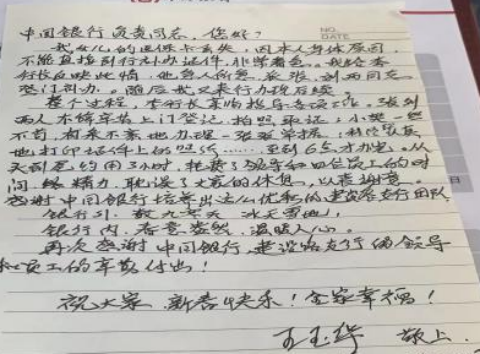 NO.
DATE
中国银行负责同志，您好？
我女儿的医保卡丢失，因本人身体原因，
不能直接到行办证件，非常着急。我给李
行长反映此情，他急人所急，派张、刘两同志
登门到办。随后我又来行办理后续。
整个过程，李行长亲临指导各项工作。张刘
两人不辞辛苦上门登记，拍照取证；小樊一丝
不苟，有条不紊地办理一张张单据；
地打印证件上的照片……，直到6点才办完。从
天到黑约用3小时，耗费了领导和四位员工的时
间、精力，耽误了大家的休息，以表谢意。
感谢中国银行培养出这么优秀的建设路支行团队
银行外，数九寒天，冰天雪地，
银行内，春意盎然，温暖人心。
再次感谢中国银行建设路支行的领导
和员工的辛勤付出！
祝大家新春快乐！全家幸福！
王玉华 敬上.
日